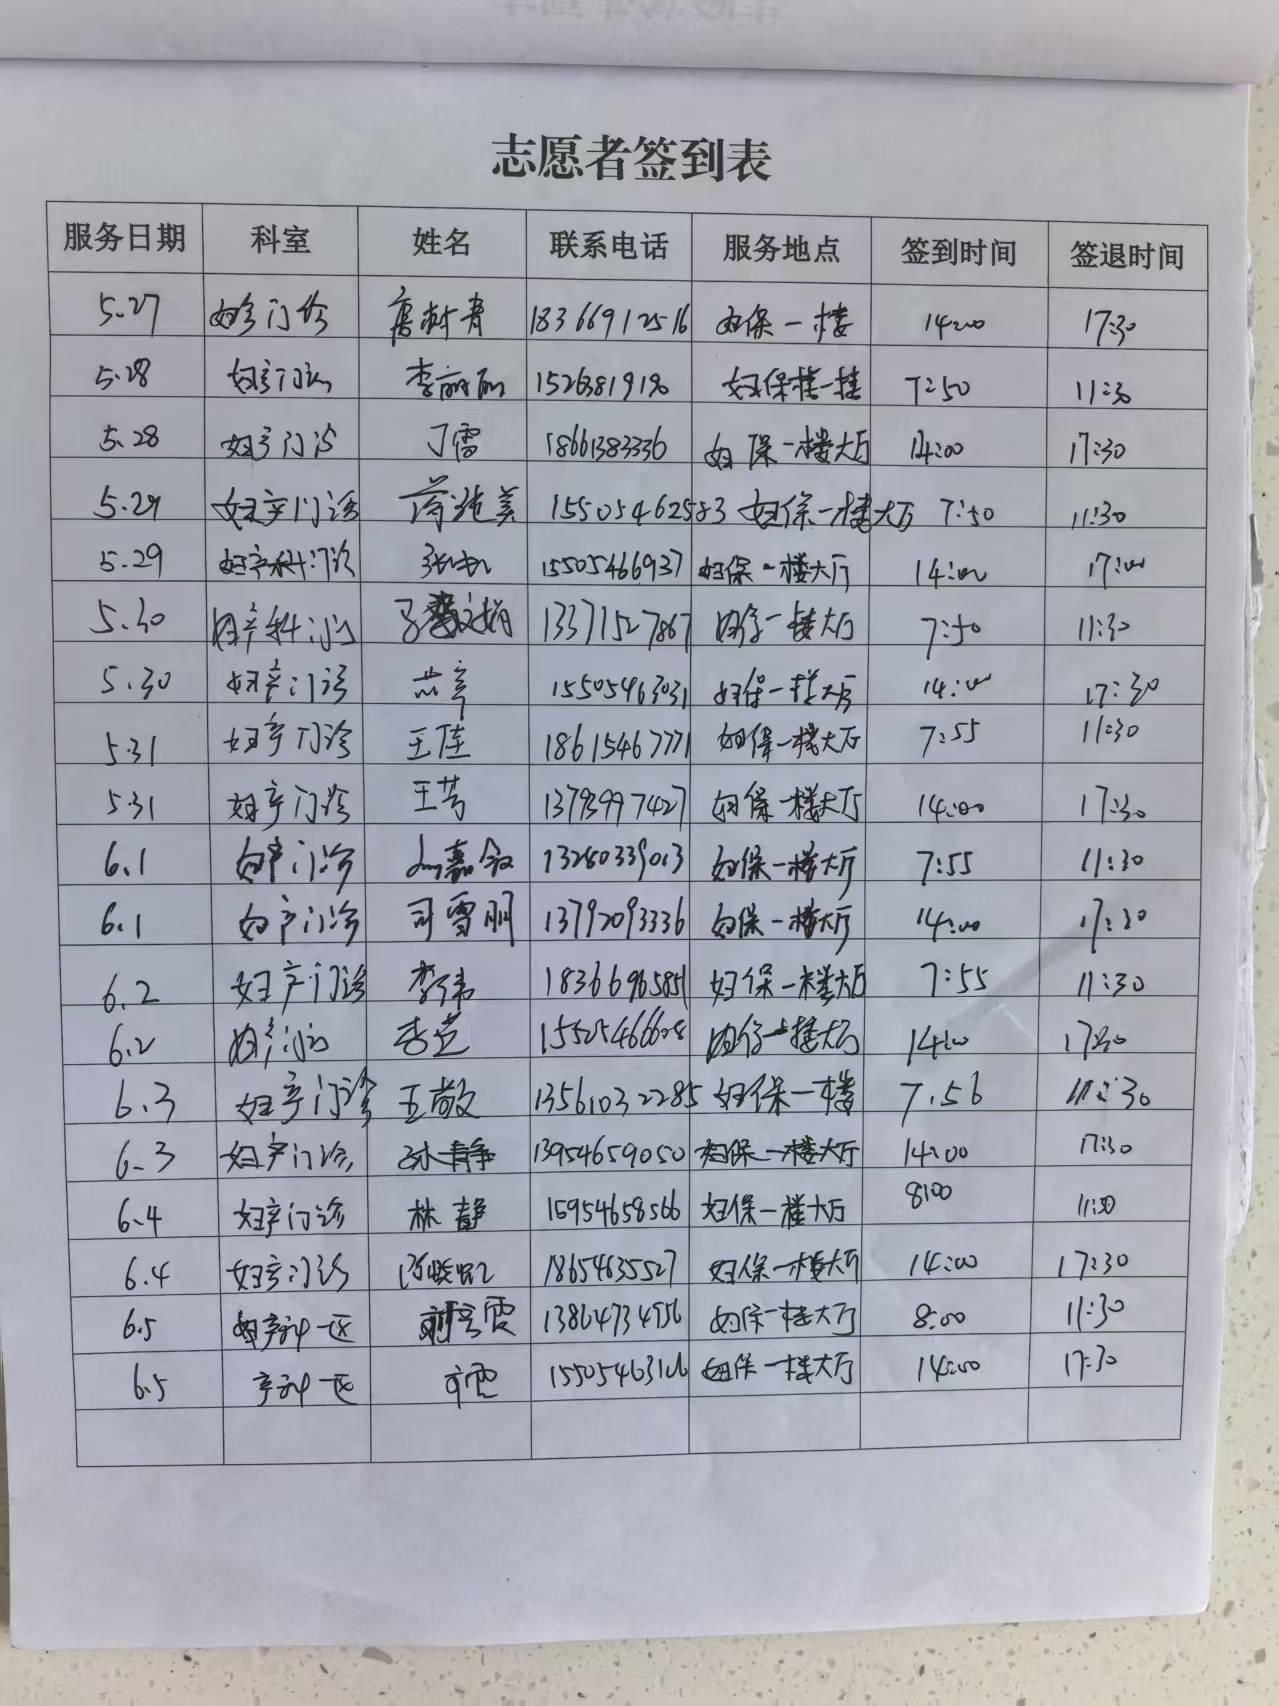 志愿者签到表
服务日期 科室 姓名 联系电话 服务地点 签到时间 签退时间
5.27 妇产门诊 18366912516 妇保一楼 14:00 17:30
5.28 妇产门诊 李丽丽 妇保楼一楼 7:50 11:30
5.28 妇产门诊 丁雷 18661383336 妇保一楼大厅 14:00 17:30
5.29 妇产门诊 妇保一楼大厅 7:50 11:30
5.29 妇产科门诊 15505466937 妇保一楼大厅 14:00 17:00
5.30 妇产科门诊 13371527867 妇保一楼大厅 7:50 11:30
5.30 妇产门诊 15505463031 妇保一楼大厅 14:00 17:30
5.31 妇产门诊 王佳 18615467771 妇保一楼大厅 7:55 11:30
5.31 妇产门诊 王芳 13793997427 妇保一楼大厅 14:00 17:30
6.1 妇产门诊 13280339013 妇保一楼大厅 7:55 11:30
6.1 妇产门诊 司雪朋 13792093336 妇保一楼大厅 14:00 17:30
6.2 妇产门诊 李伟 18366965851 妇保一楼大厅 7:55 11:30
6.2 妇产门诊 妇保一楼大厅 14:00 17:30
6.3 妇产门诊 王敬 13561032285 妇保一楼 7.56 11:30
6.3 妇产门诊 孙静 13954659050 妇保一楼大厅 14:00 17:30
6.4 妇产门诊 林静 15954658566 妇保一楼大厅 8:00
6.4 妇产门诊 18654635527 妇保一楼大厅 14:00 17:30
6.5 妇产科一区 13864734956 妇保一楼大厅 8:00 11:30
6.5 产科一区 妇保一楼大厅 14:00 17:30